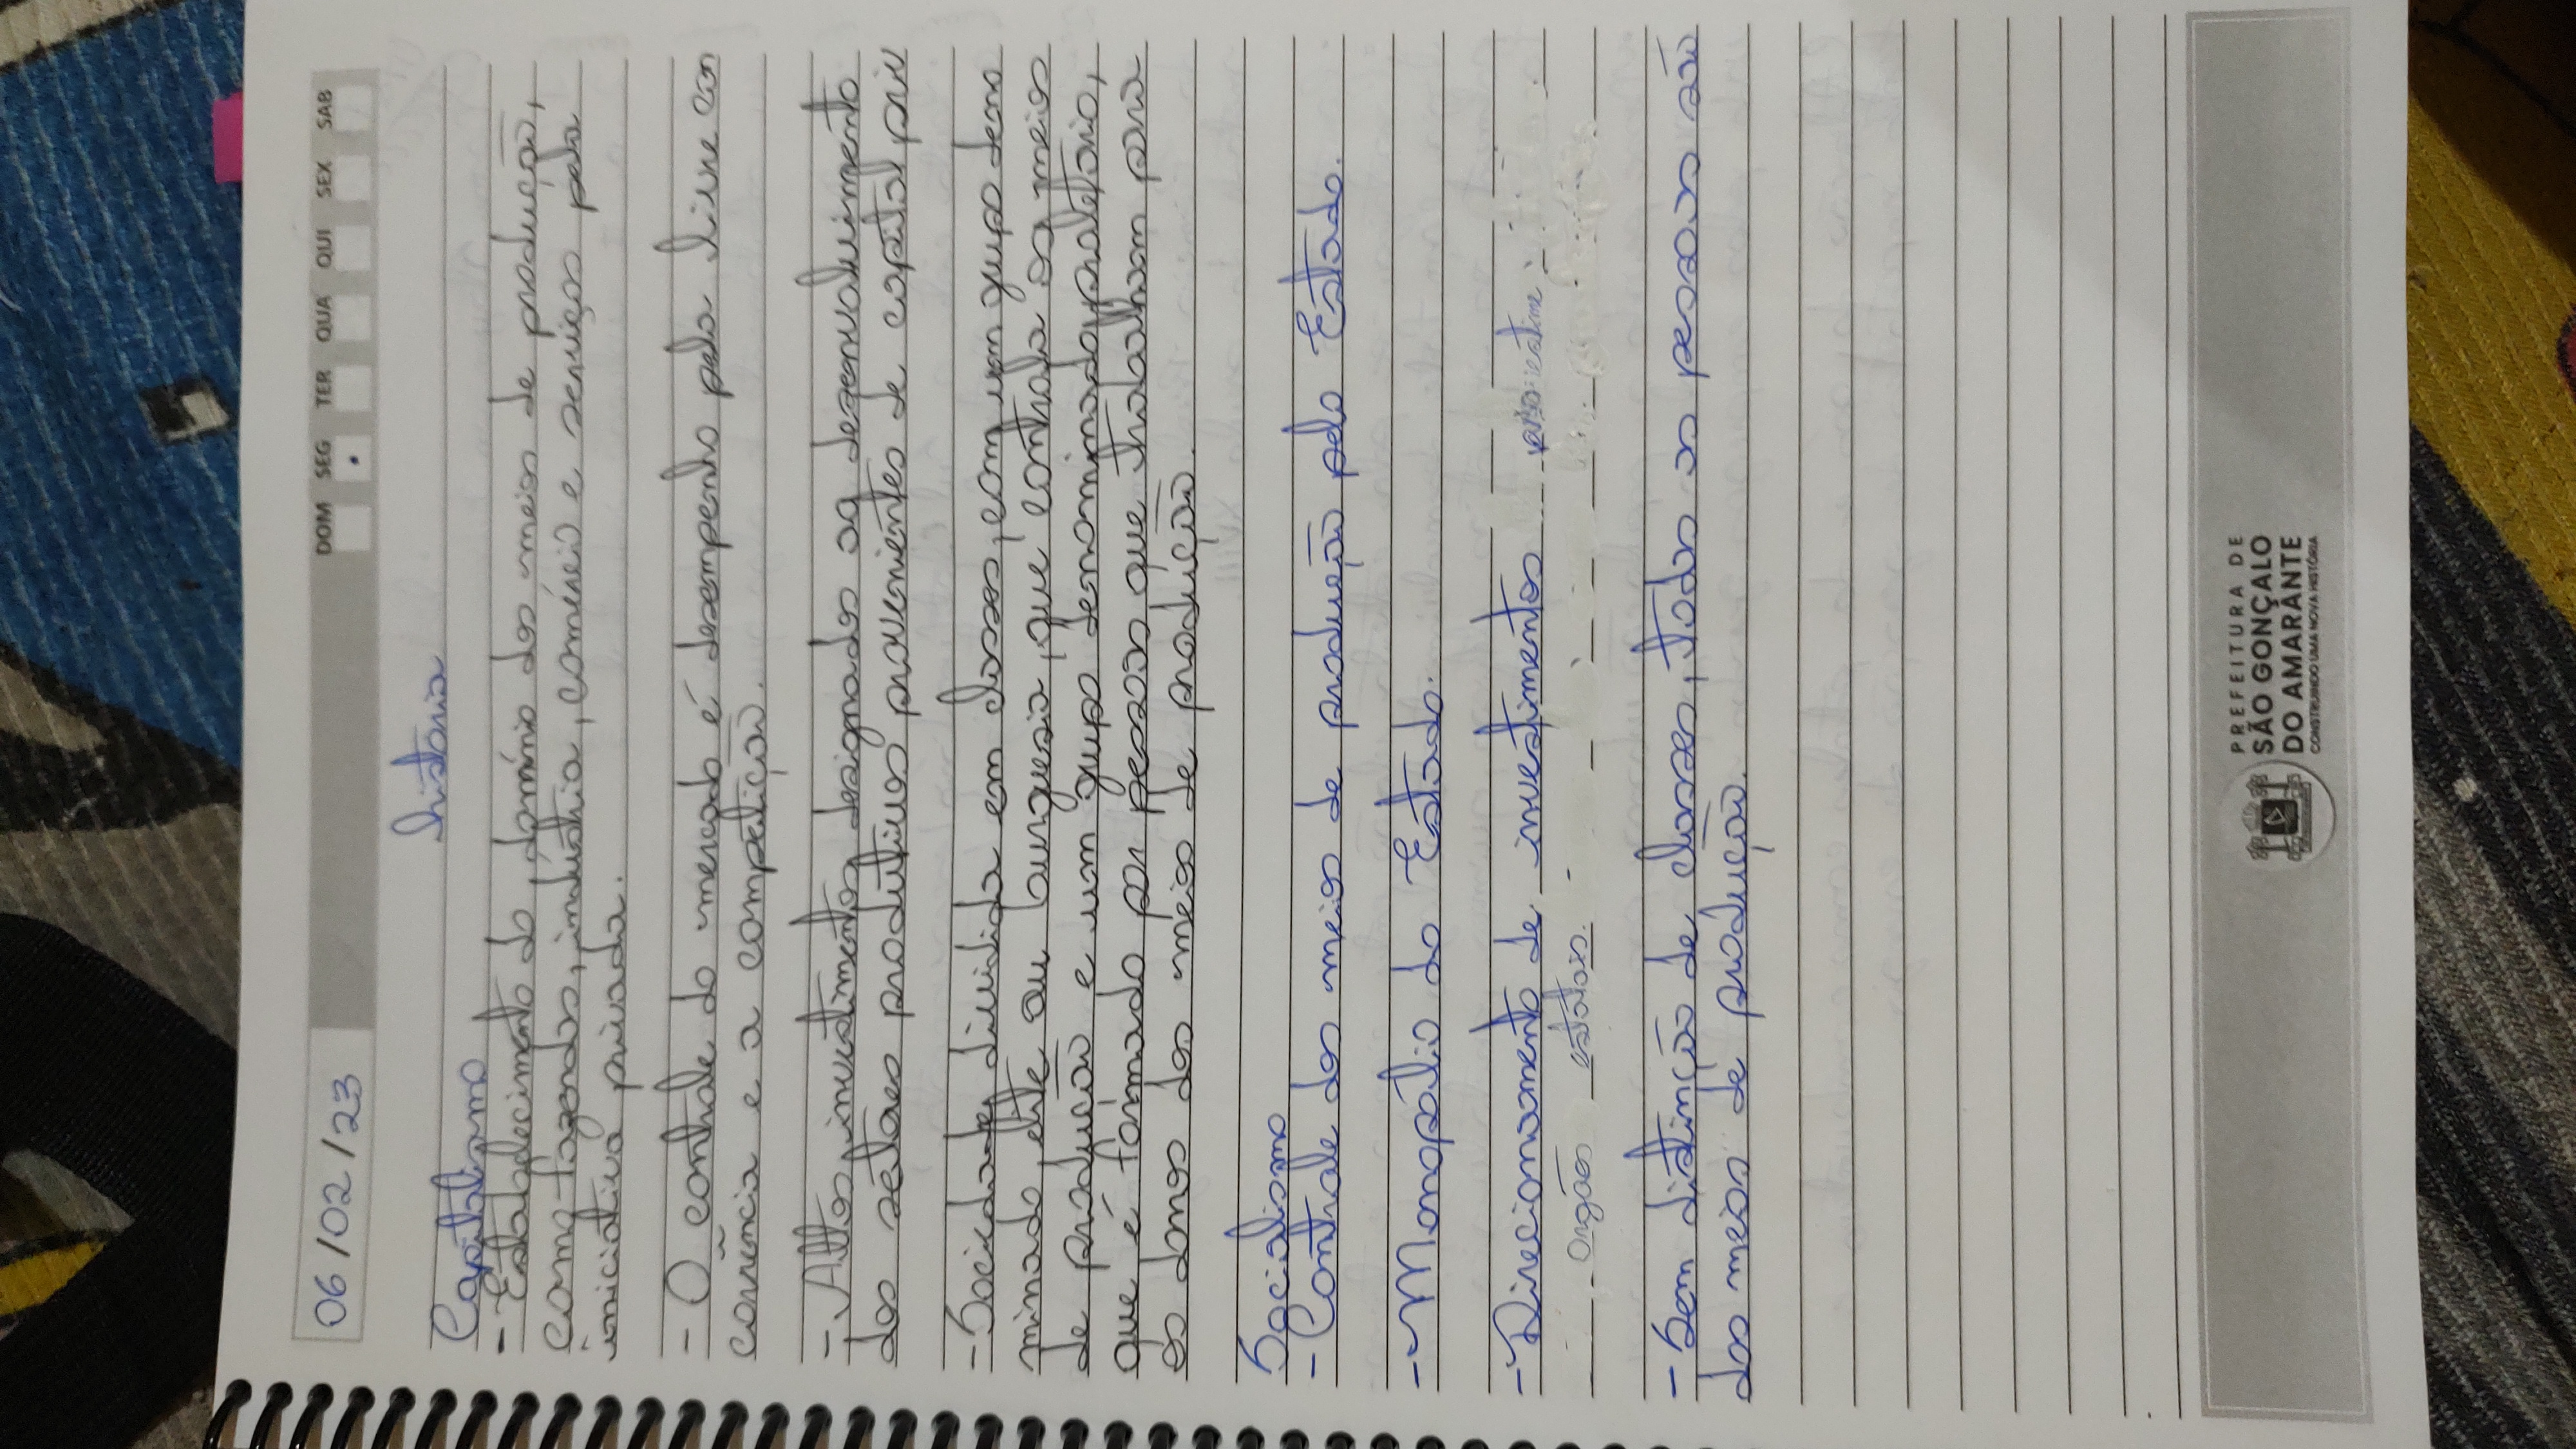 06/02/23
DOM SEG TER QUA QUI SEX SAB
história
Capitalismo
- Estabelecimento do domínio dos meios de produção,
como fazendas, indústria, comércio e serviços pela
iniciativa privada.
- O controle do mercado é desempenho pela livre con
corrência e a competição.
- Altos investimentos designados ao desenvolvimento
dos setores produtivos provenientes de capital priv
- Sociedade dividida em classes, com um grupo deno
minado, elite ou burguesia, que controla os meios
de produção e um grupo denominado proletário,
que é formado por pessoas que trabalham para
os donos dos meios de produção.
Socialismo
- Controle dos meios de produção pelo Estado.
- Monopólio do Estado.
- Direcionamento de investimentos
orgãos estatais.
- Sem distinção de classes, todas as pessoas são
dos meios de produção.
PREFEITURA DE
SÃO GONÇALO
DO AMARANTE
CONSTRUINDO UMA NOVA HISTÓRIA